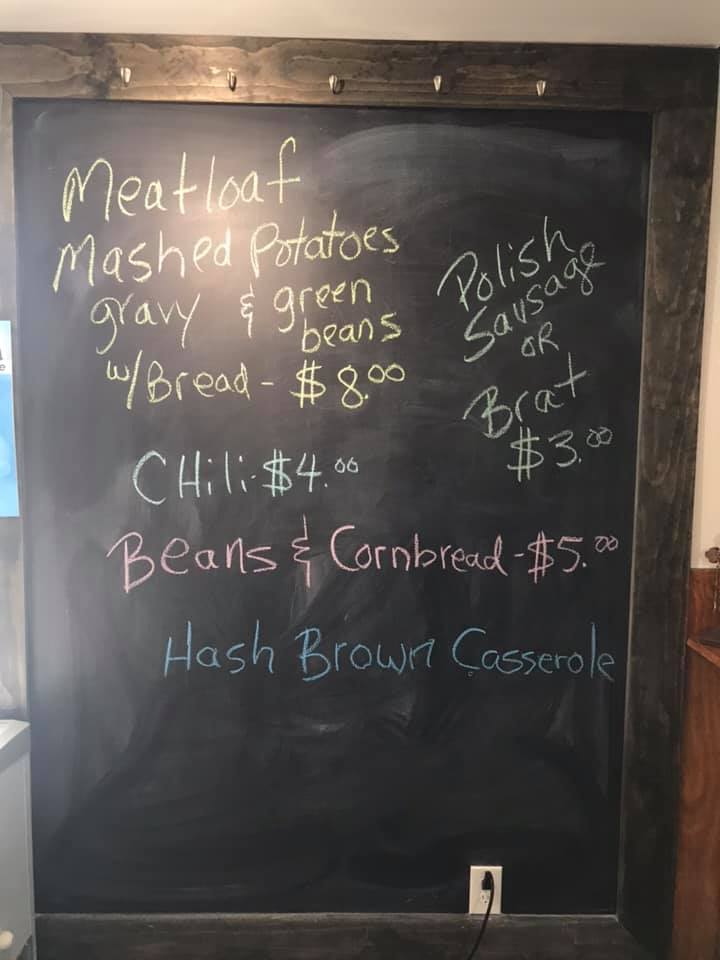 Meatloaf
Mashed Potatoes
gravy & green
beans
w/Bread - $8.00
Polish
Sausage
OR
Brat
$3.00
CHili-$4.00
Beans & Cornbread-$5.00
Hash Brown Casserole